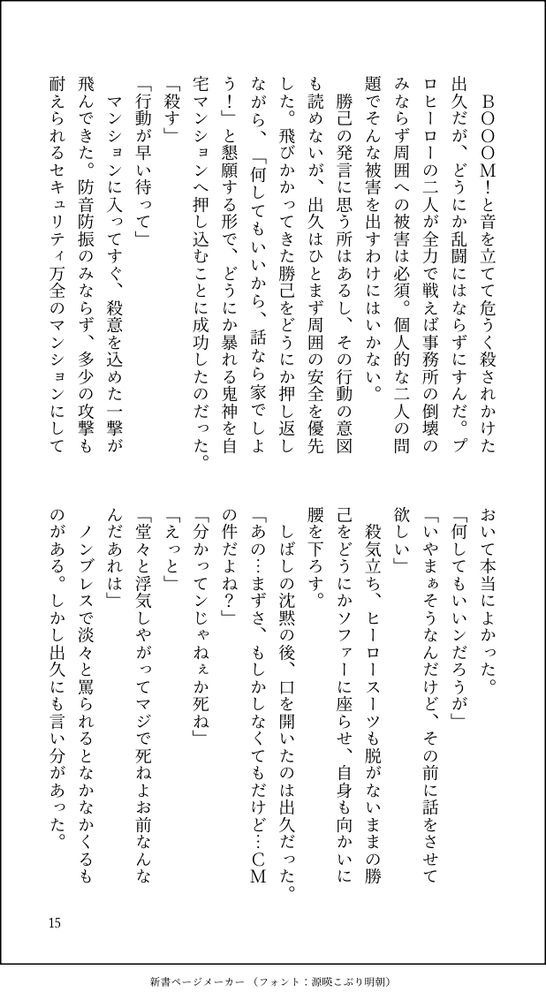 ＢＯＯＯＭ！と音を立てて危うく殺されかけた
出久だが、どうにか乱闘にはならずにすんだ。プ
ロヒーローの二人が全力で戦えば事務所の倒壊の
みならず周囲への被害は必須。個人的な二人の問
題でそんな被害を出すわけにはいかない。
　勝己の発言に思う所はあるし、その行動の意図
も読めないが、出久はひとまず周囲の安全を優先
した。飛びかかってきた勝己をどうにか押し返し
ながら、「何してもいいから、話なら家でしよ
う！」と懇願する形で、どうにか暴れる鬼神を自
宅マンションへ押し込むことに成功したのだった。
「殺す」
「行動が早い待って」
　マンションに入ってすぐ、殺意を込めた一撃が
飛んできた。防音防振のみならず、多少の攻撃も
耐えられるセキュリティ万全のマンションにして
おいて本当によかった。
「何してもいいンだろうが」
「いやまぁそうなんだけど、その前に話をさせて
欲しい」
　殺気立ち、ヒーロースーツも脱がないままの勝
己をどうにかソファーに座らせ、自身も向かいに
腰を下ろす。
　しばしの沈黙の後、口を開いたのは出久だった。
「あの…まずさ、もしかしなくてもだけど…ＣＭ
の件だよね？」
「分かってンじゃねぇか死ね」
「えっと」
「堂々と浮気しやがってマジで死ねよお前なんな
んだあれは」
　ノンブレスで淡々と罵られるとなかなかくるも
のがある。しかし出久にも言い分があった。
15
新書ページメーカー（フォント：源暎こぶり明朝）